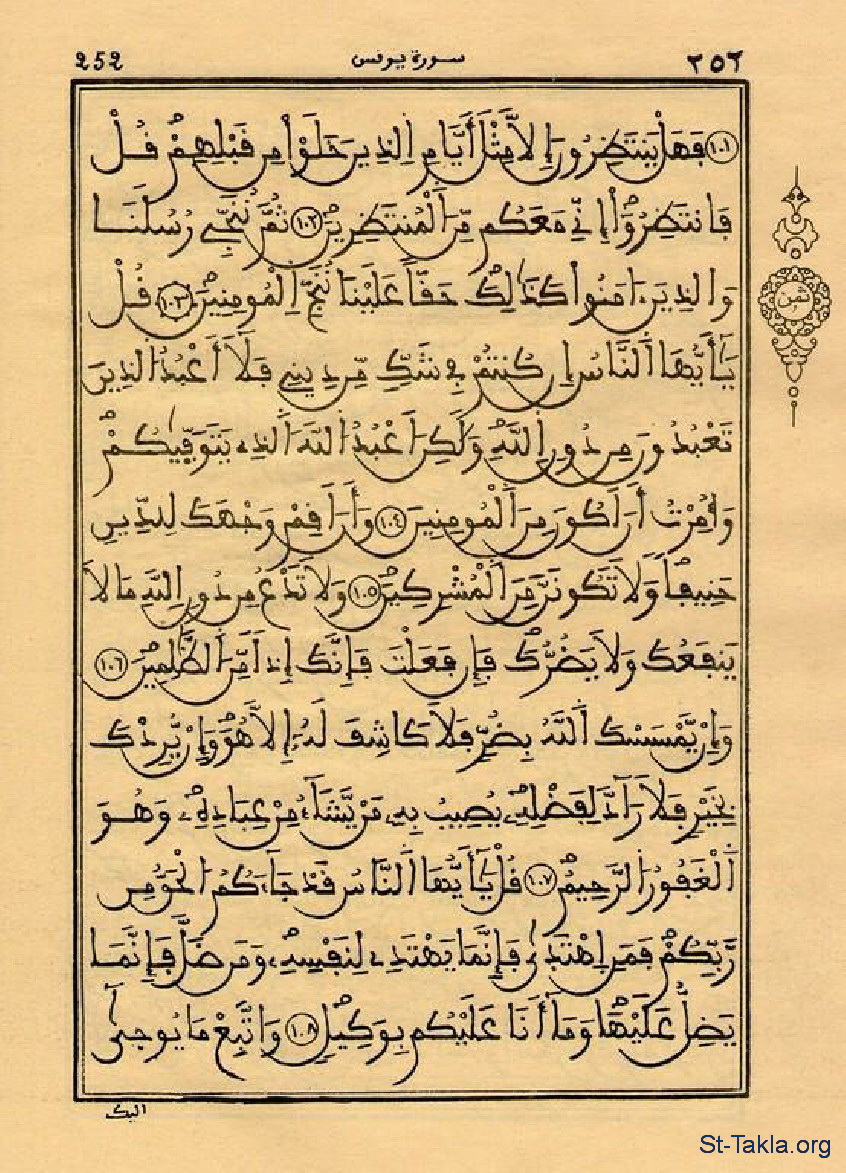 252 سورة يونس ٢٥٢
(١٠١) فَهَلْ يَنتَظِرُونَ إِلَّا مِثْلَ أَيَّامِ اِلذِينَ خَلَوْاْ مِن قَبْلِهِمْ قُلْ
فَانتَظِرُوٓاْ إِنِّي مَعَكُم مِّنَ اَلْمُنتَظِرِينَ (١٠٢) ثُمَّ نُنَجِّي رُسُلَنَا
وَالذِينَ ءَامَنُواْ كَذَٰلِكَ حَقّاً عَلَيْنَا نُنَجِّ اِلْمُومِنِينَ (١٠٣) قُلْ
يَٰٓأَيُّهَا اَلنَّاسُ إِن كُنتُمْ فِي شَكٍّ مِّن دِينِي فَلَآ أَعْبُدُ اُلذِينَ
تَعْبُدُونَ مِن دُونِ اِللَّهِ وَلَٰكِنَ اَعْبُدُ اُللَّهَ اَلذِي يَتَوَفَّيٰكُمْ
وَأُمِرْتُ أَنَ اَكُونَ مِنَ اَلْمُومِنِينَ (١٠٤) وَأَنَ اَقِمْ وَجْهَكَ لِلدِّينِ
حَنِيفاً وَلَا تَكُونَنَّ مِنَ اَلْمُشْرِكِينَ (١٠٥) وَلَا تَدْعُ مِن دُونِ اِللَّهِ مَا لَا
يَنفَعُكَ وَلَا يَضُرُّكَ فَإِن فَعَلْتَ فَإِنَّكَ إِذاً مِّنَ اَلظَّٰلِمِينَ (١٠٦)
وَإِنْ يَّمْسَسْكَ اَللَّهُ بِضُرٍّ فَلَا كَاشِفَ لَهُۥٓ إِلَّا هُوَ وَإِنْ يُّرِدْكَ
بِخَيْرٍ فَلَا رَآدَّ لِفَضْلِهِۦ يُصِيبُ بِهِۦ مَنْ يَّشَآءُ مِنْ عِبَادِهِۦ وَهُوَ
اَلْغَفُورُ اُلرَّحِيمُ (١٠٧) قُلْ يَٰٓأَيُّهَا اَلنَّاسُ قَدْ جَآءَكُمُ اُلْحَقُّ مِن
رَّبِّكُمْ فَمَنِ اِهْتَدَىٰ فَإِنَّمَا يَهْتَدِي لِنَفْسِهِۦ وَمَن ضَلَّ فَإِنَّمَا
يَضِلُّ عَلَيْهَا وَمَآ أَنَا عَلَيْكُم بِوَكِيلٍ (١٠٨) وَاتَّبِعْ مَا يُوحَىٰٓ
ثمن
إليك
St-Takla.org